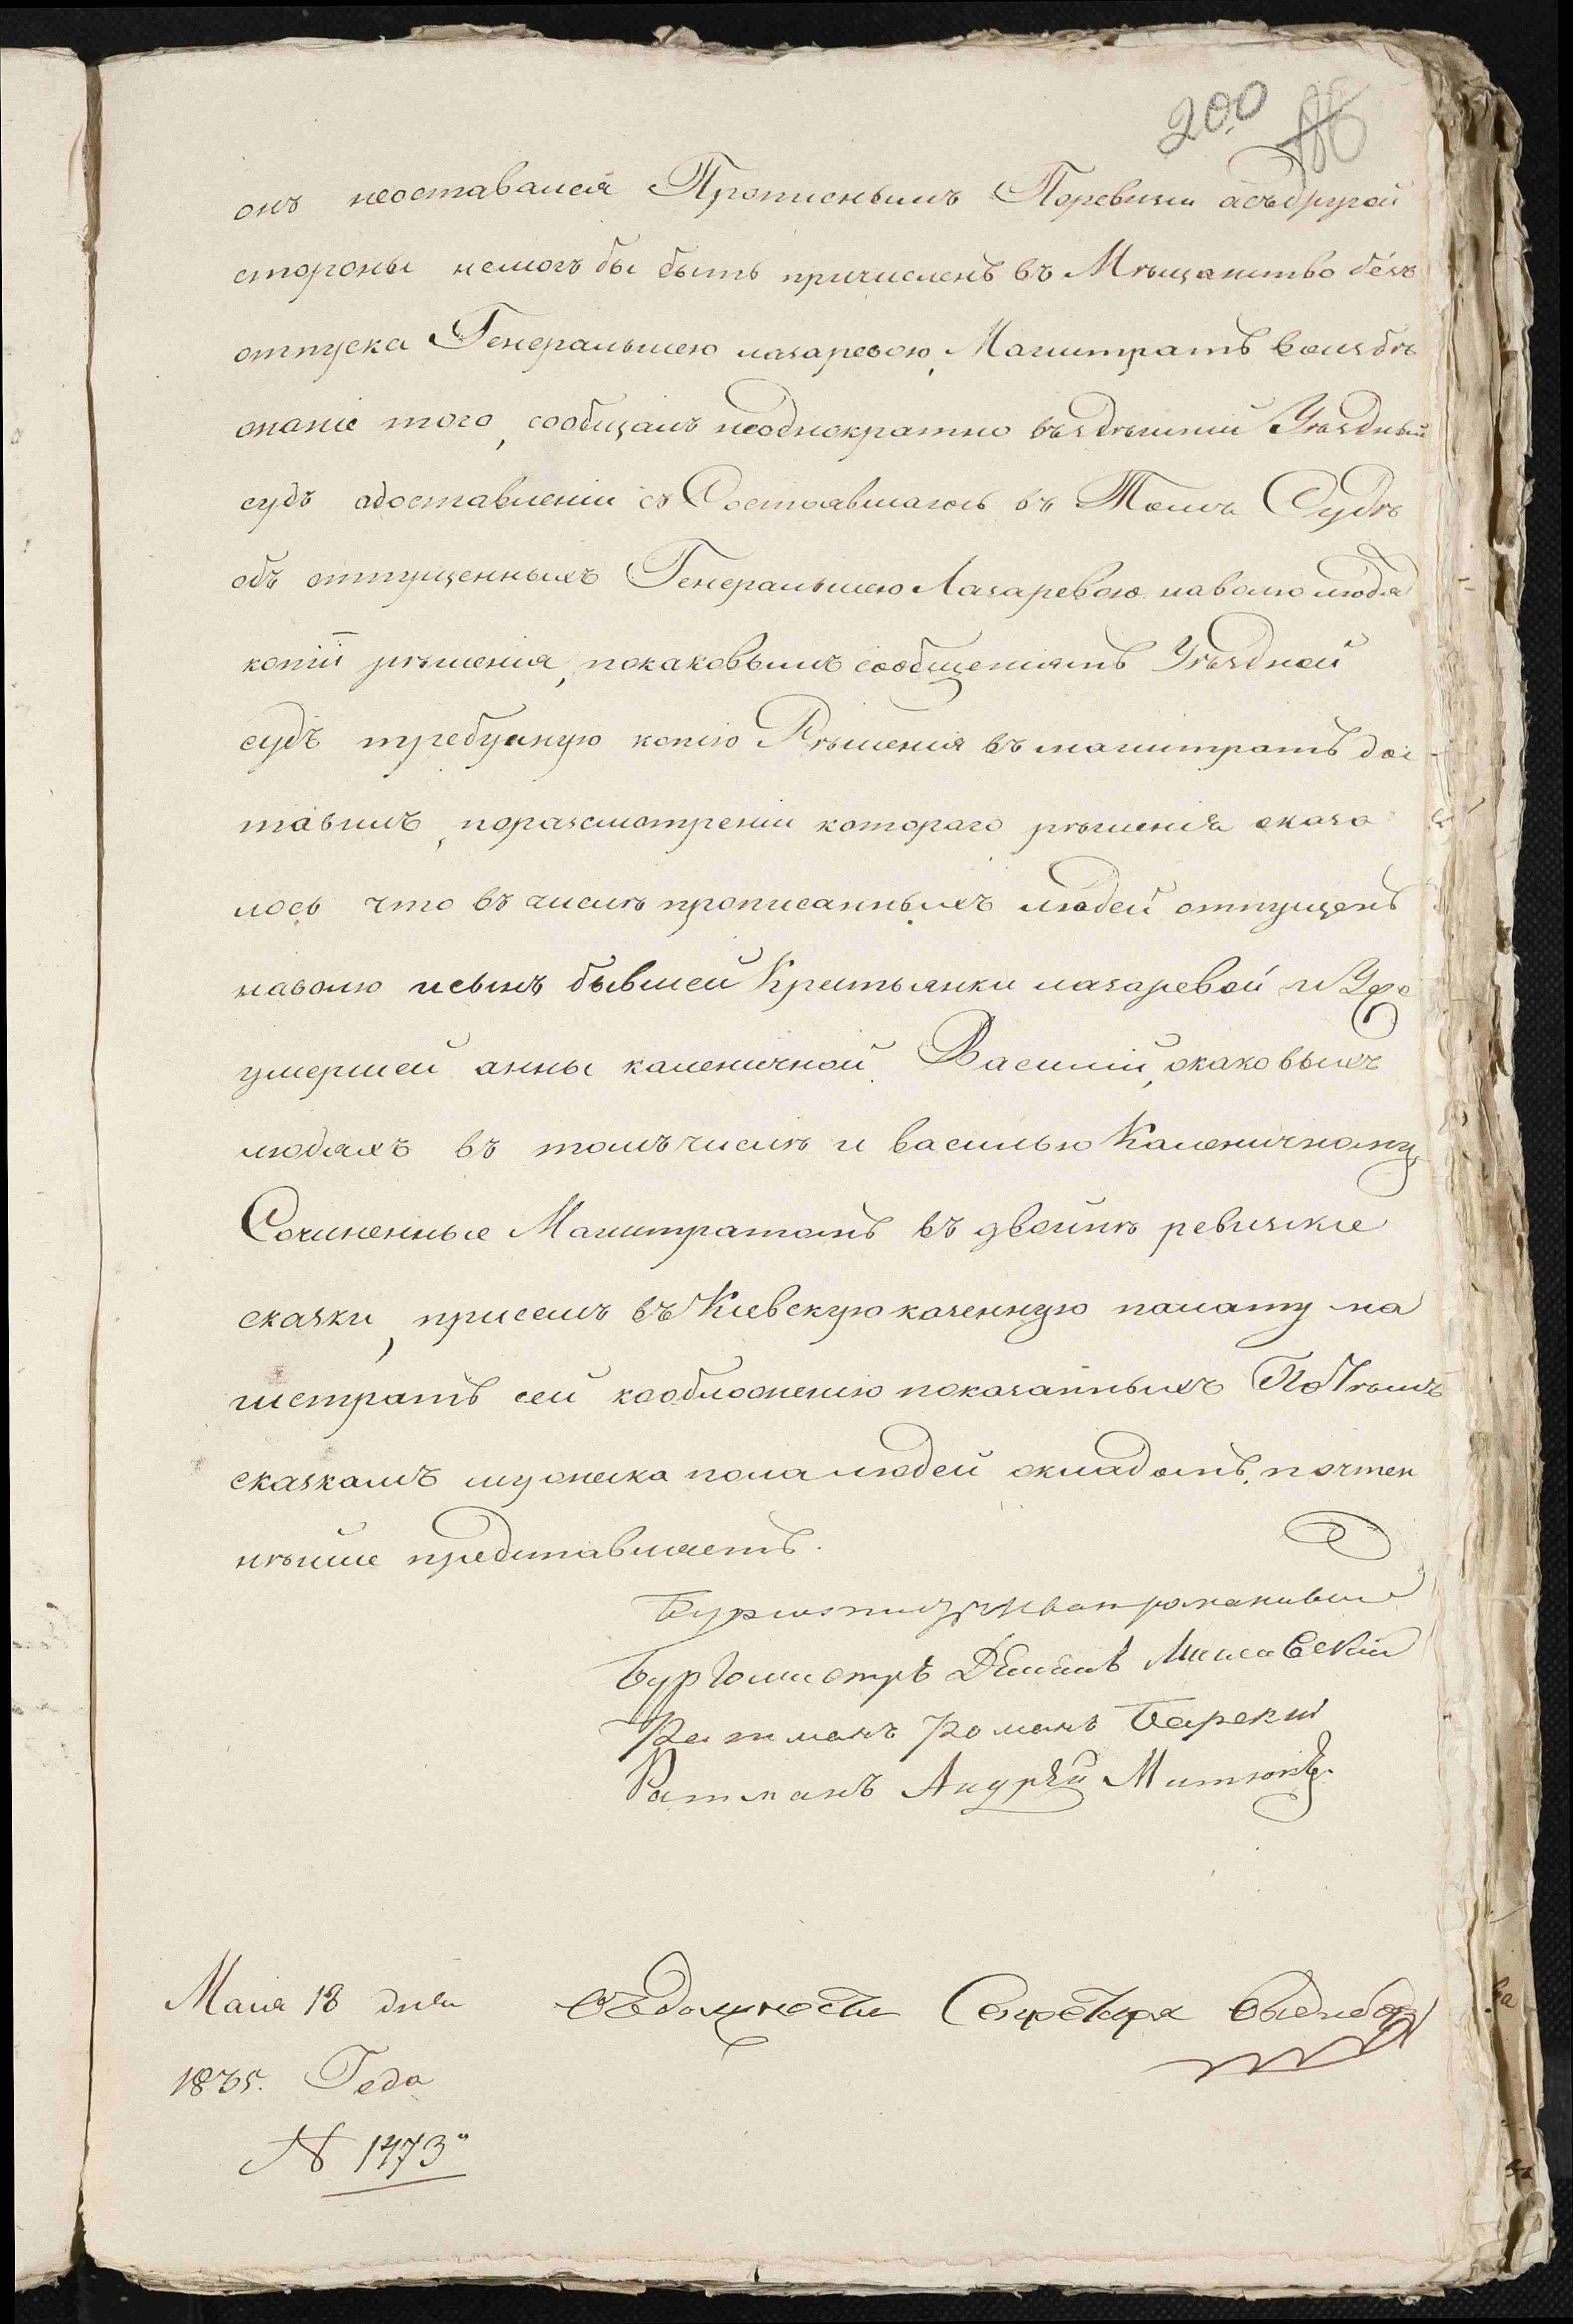 200
онъ неоставался Прописнымъ Поревизіи асъдругой
стороны немогъ бы быть причисленъ въ Мѣщанство безъ
отпуска Генеральшею лазаревою, Магистратъ воизбѣ
жаніе того, сообщалъ неоднократно въздѣшній Уѣздный
судъ одоставленіи съ Состоявшагось въ Томъ Судѣ
объ отпущенныхъ Генеральшею Лазаревою наволю людя
копіи рѣшенія, покаковымъ сообщеніямъ Уѣздной
судъ требуемую копію Рѣшенія въ магистратъ дос
тавилъ, поразсмотреніи котораго рѣшенія оказа
лось что въ числѣ прописанныхъ людей отпущенъ
наволю исынъ бывшей Крестьянки лазаревой и Уже
умершей анны каленичной Василій, окаковыхъ
людяхъ въ томъ числѣ и василью Каленичному
Сочиненные Магистратомъ въ двойнѣ ревизкіе
сказки, присемъ въ Кіевскую казенную палату ма
гистратъ сей кообложенію показанныхъ По Тѣмъ
сказкамъ мужеска пола людей окладомъ, почтен
нѣйше представляетъ.
Бургомистръ Иванъ
Бургомистръ Милавскій
Ратманъ Романъ Барскій
Ратманъ Андрѣй
Маія 18 дня
въдолжности Секретаря
1835. Года
№ 1473